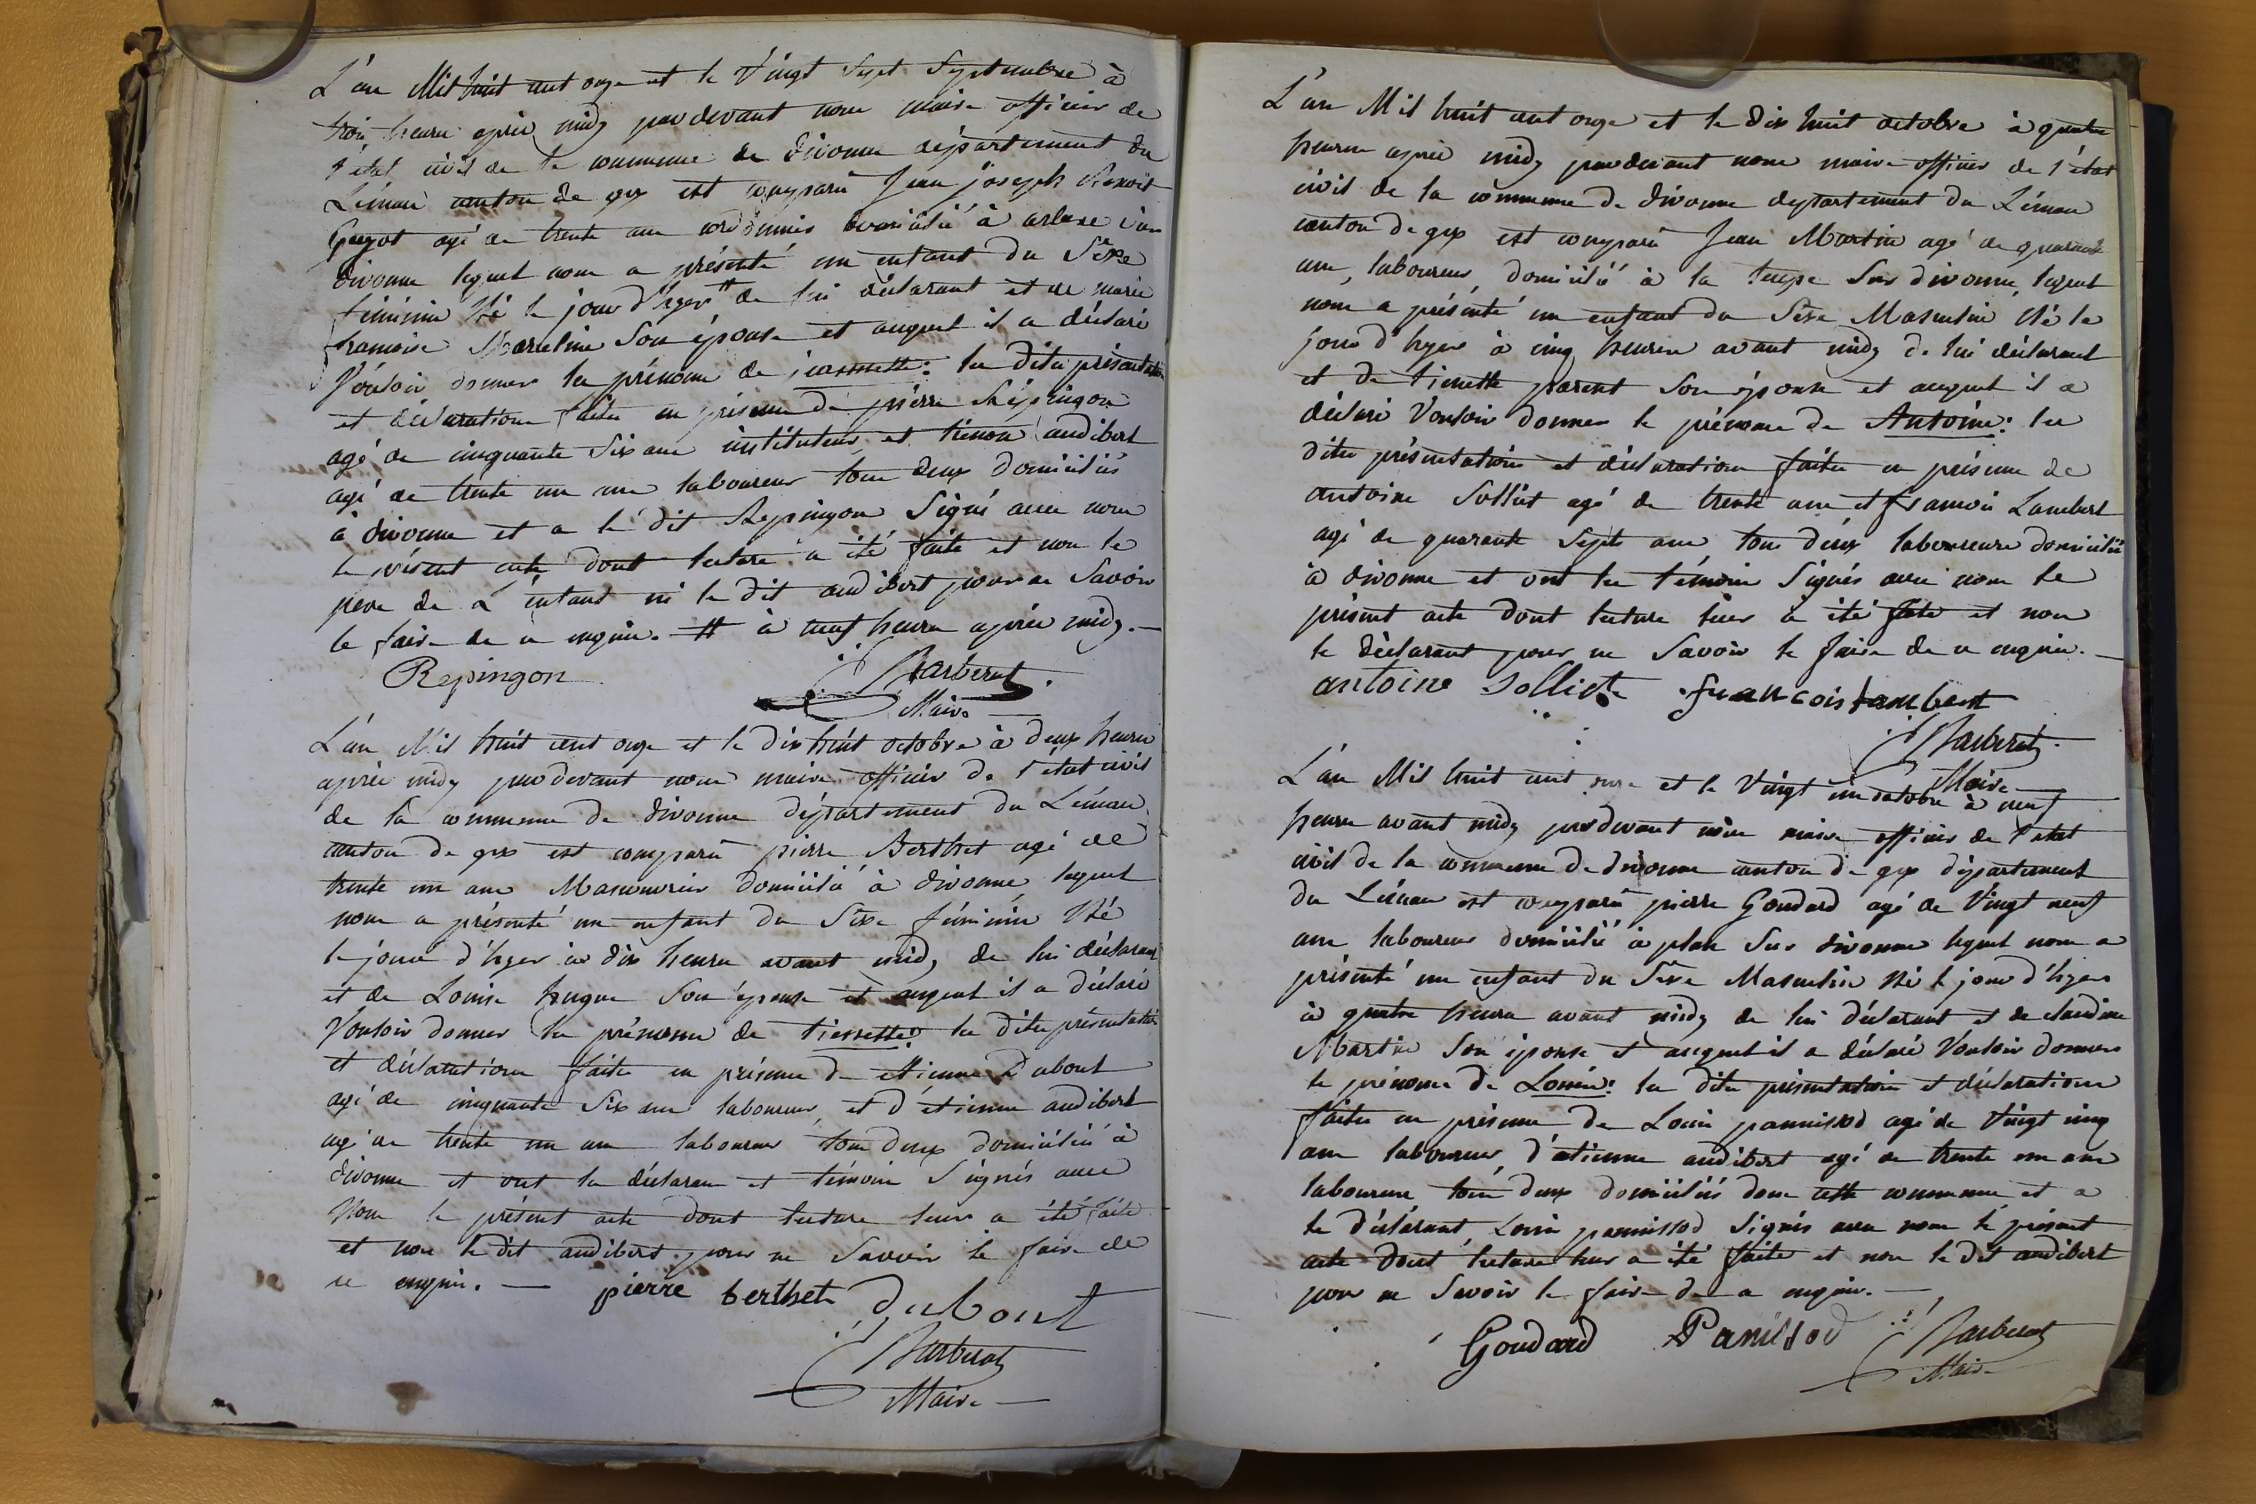 L'an Mil huit cent onze et le Vingt Sept Septembre à
trois heures après midy pardevant nous maire officier de
l'état civil de la commune de divonne département du
Léman canton de gex est comparû Jean joseph Benoit
Guyot agé de trente ans cordonnier domicilié à arbere sur
divonne lequel nous a présenté un enfant du Séxe
féminin Né le jour d'hyer # de lui déclarant et de marie
francoise Marceline Son épouse et auquel il a déclaré
Vouloir donner les prénoms de jeannette: les dites présentation
et déclaration faites en présence de pierre Répingon
agé de cinquante Six ans instituteur et tienne audibert
agé de trente un ans laboureur tous deux domiciliés
à divonne et a le dit Repingon Signé avec nous
le présent acte dont lecture a été faite et non le
pere de L'enfant ni le dit audibert pour ne Savoir
le faire de ce enquis. # à neuf heures après midy.
Repingon Barberat
Maire
L'an Mil huit cent onze et le dix huit octobre à deux heures
après midy pardevant nous maire officier de l'état civil
de la commune de divonne département du Léman
canton de gex est comparû pierre Berthet agé de
trente un ans Marechal domicilié à divonne lequel
nous a présenté un enfant du Séxe féminin Né
le jour d'hyer à dix heures avant midy de lui déclarant
et de Louise hugue Son épouse et auquel il a déclaré
Vouloir donner les prénoms de tiennette: les dites présentation
et déclaration faites en présence de etienne Dubout
agé de cinquante Six ans laboureur et d'étienne audibert
agé de trente un ans laboureur tous deux domiciliés à
divonne et ont les déclarant et témoin Signés avec
Nous le présent acte dont lecture leur a été faite
et non le dit audibert pour ne Savoir le faire de
ce enquis. pierre berthet dubout
Barberat
Maire
L'an Mil huit cent onze et le dix huit octobre à quatre
heures après midy pardevant nous maire officier de l'état
civil de la commune de divonne departement du Léman
canton de gex est comparû Jean Martin agé de quarante
ans, laboureur domicilié à la Sur divonne, lequel
nous a présenté un enfant du Séxe Masculin Né le
jour d'hyer à cinq heures avant midy de lui déclarant
et de tienette parent Son épouse et auquel il a
déclaré Vouloir donner le prénoms de Antoine: les
dites présentation et déclaration faites en présence de
antoine Solliet agé de trente ans et francois Lambert
agé de quarante Sept ans tous deux laboureurs domiciliés
à divonne et ont les témoins Signés avec nous le
présent acte dont lecture leur a été faite et non
le déclarant pour ne Savoir le faire de ce enquis.
antoine Solliet francois Lambert
Barberat
Maire
L'an Mil huit cent onze et le Vingt un octobre à neuf
heures avant midy pardevant nous maire officier de l'état
civil de la commune de divonne canton de gex département
du Léman est comparû pierre Goudard agé de Vingt neuf
ans laboureur domicilié à plan Sur divonne lequel nous a
présenté un enfant du Séxe Masculin Né le jour d'hyer
à quatre heures avant midy de lui déclarant et de claudine
Martin Son épouse et auquel il a déclaré Vouloir donner
le prénoms de Louis: les dites présentation et déclaration
faites en présence de Louis pannissod agé de Vingt cinq
ans laboureur, d'étienne audibert agé de trente un ans
laboureur tous deux domiciliés dans cette commune et a
le déclarant, Louis pannissod Signés avec nous le présent
acte dont lecture leur a été faite et non le dit audibert
pour ne Savoir le faire de ce enquis.
Goudard Panissod Barberat
Maire